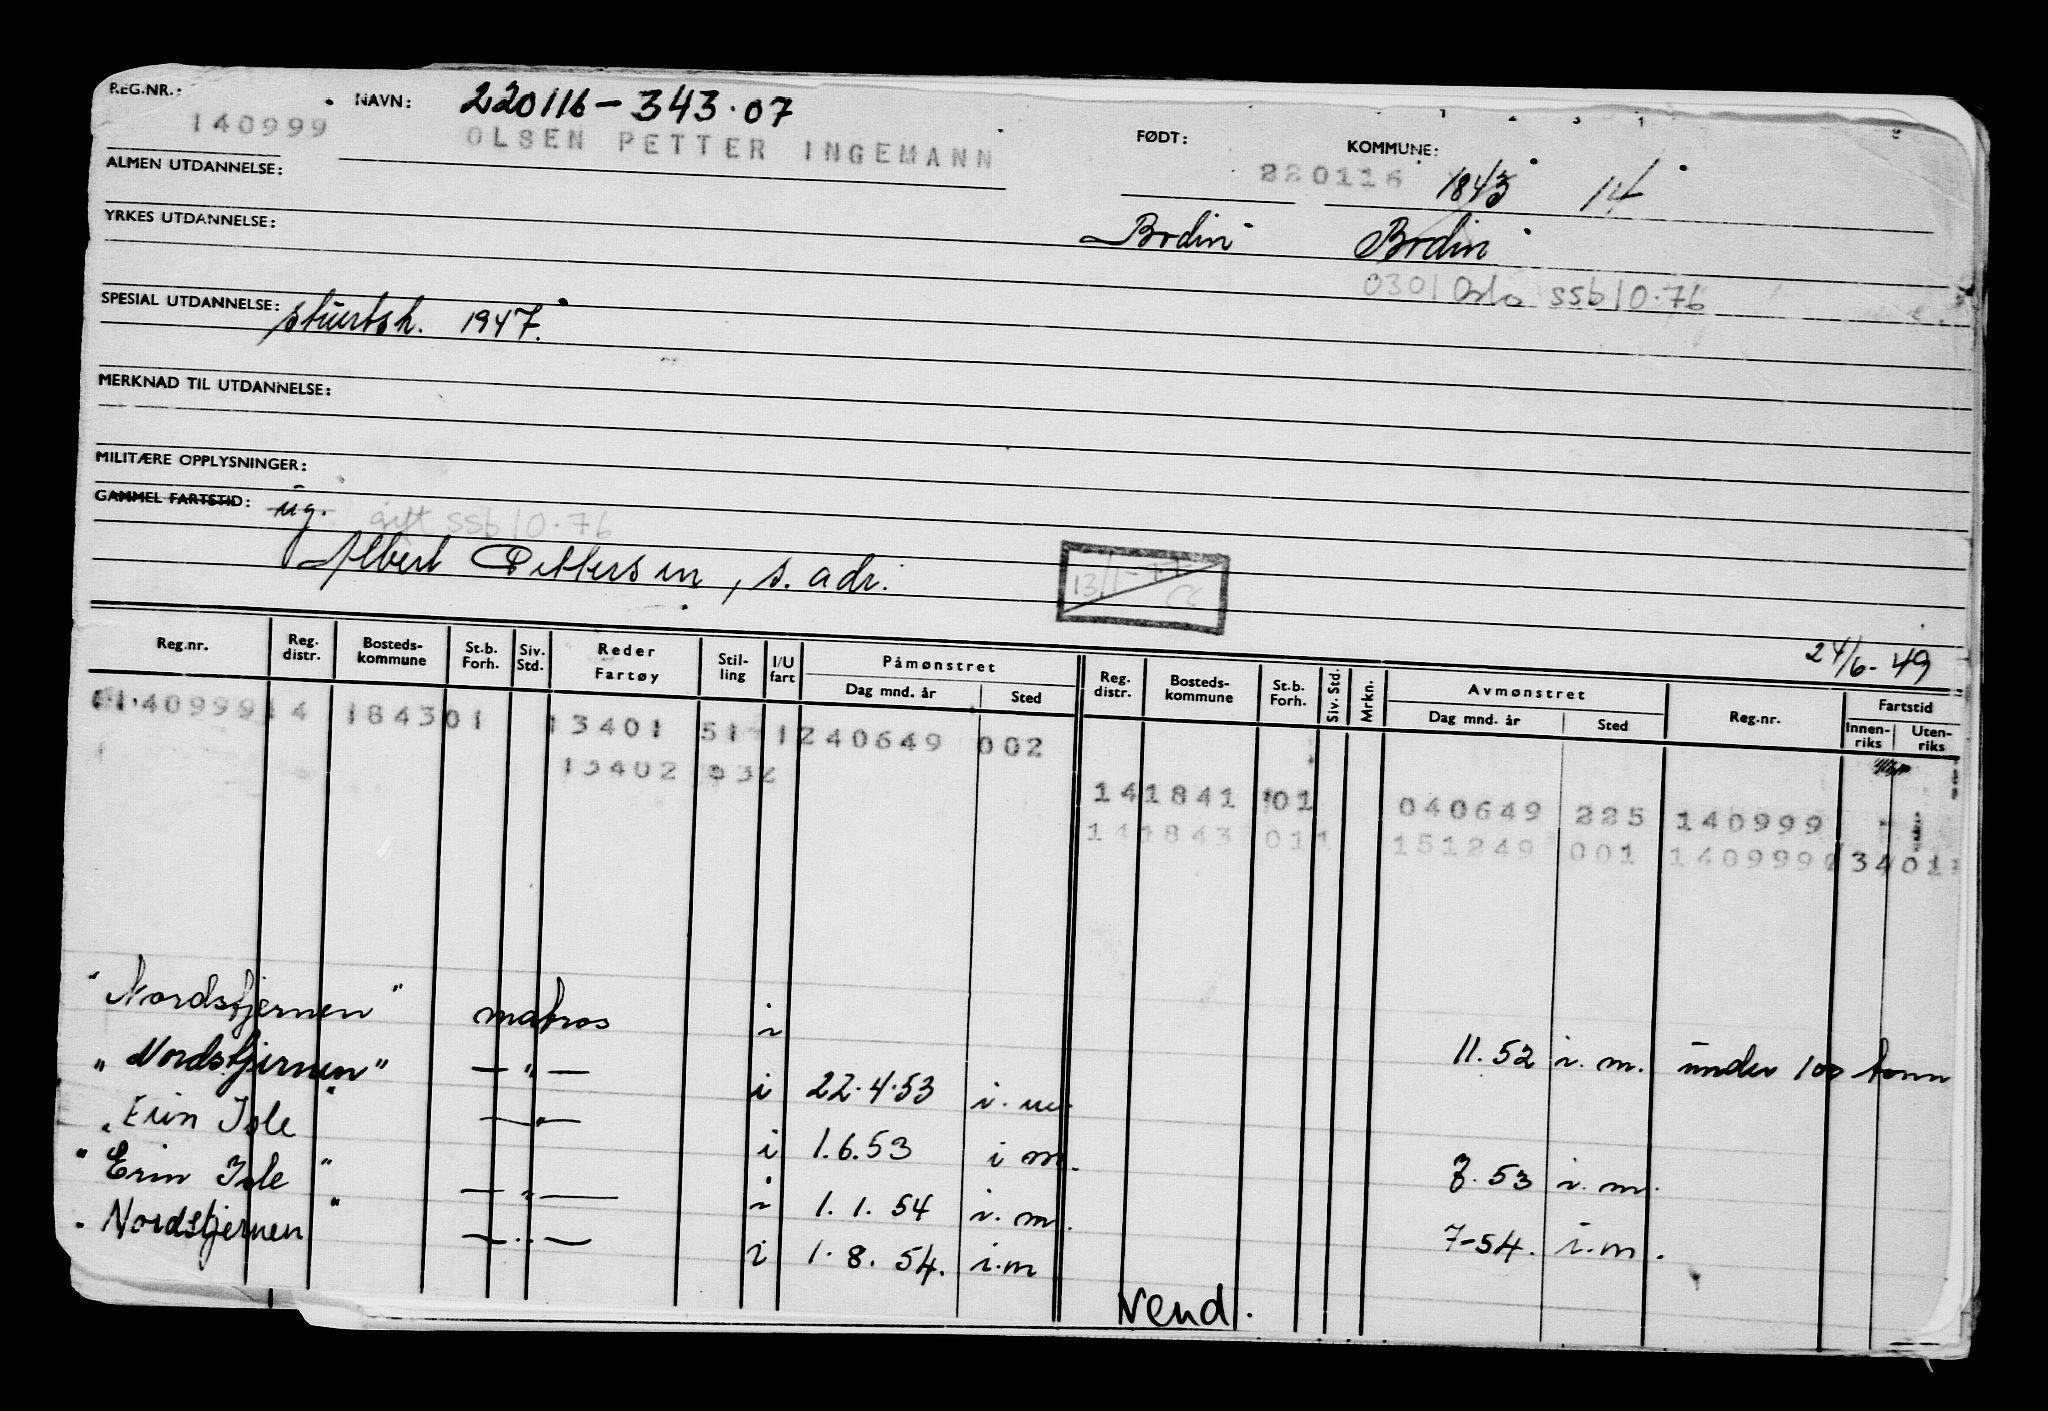 REG.NR.: NAVN: 220116-343.07
140999 OLSEN PETTER INGEMANN FØDT: KOMMUNE:
220116 1843 14
ALMEN UTDANNELSE:
YRKES UTDANNELSE: Bodin Bodin
0301 Oslo ssb 10.76
SPESIAL UTDANNELSE: stuertsk. 1947.
MERKNAD TIL UTDANNELSE:
MILITÆRE OPPLYSNINGER:
GAMMEL FARTSTID: ug. gift ssb 10.76
Albert Pettersen, s. adr. 13/1-77
24/6-49
Reg.nr. Reg. distr. Bosteds-kommune St.b. Forh. Siv. Std. Reder Fartøy Stil-ling I/U fart Påmønstret Dag mnd. år Sted Reg. distr. Bosteds-kommune St.b. Forh. Siv. Std. Mrkn. Avmønstret Dag mnd. år Sted Reg.nr. Fartstid Innen-riks Uten-riks
140999 14 1843 01 13401 51 1 240649 002
13402 032
14 1841 01 040649 225 140999
14 1843 011 151249 001 140999 13401
"Nordstjernen" matros i 11.52 i.m. under 100 tonn
"Nordstjernen" —"— i 22.4.53 i.m.
"Erin Isle" —"— i 1.6.53 i m. 7.53 i.m.
"Erin Isle" —"— i 1.1.54 i.m. 7-54. i.m.
"Nordstjernen" —"— i 1.8.54. i.m
Vend.